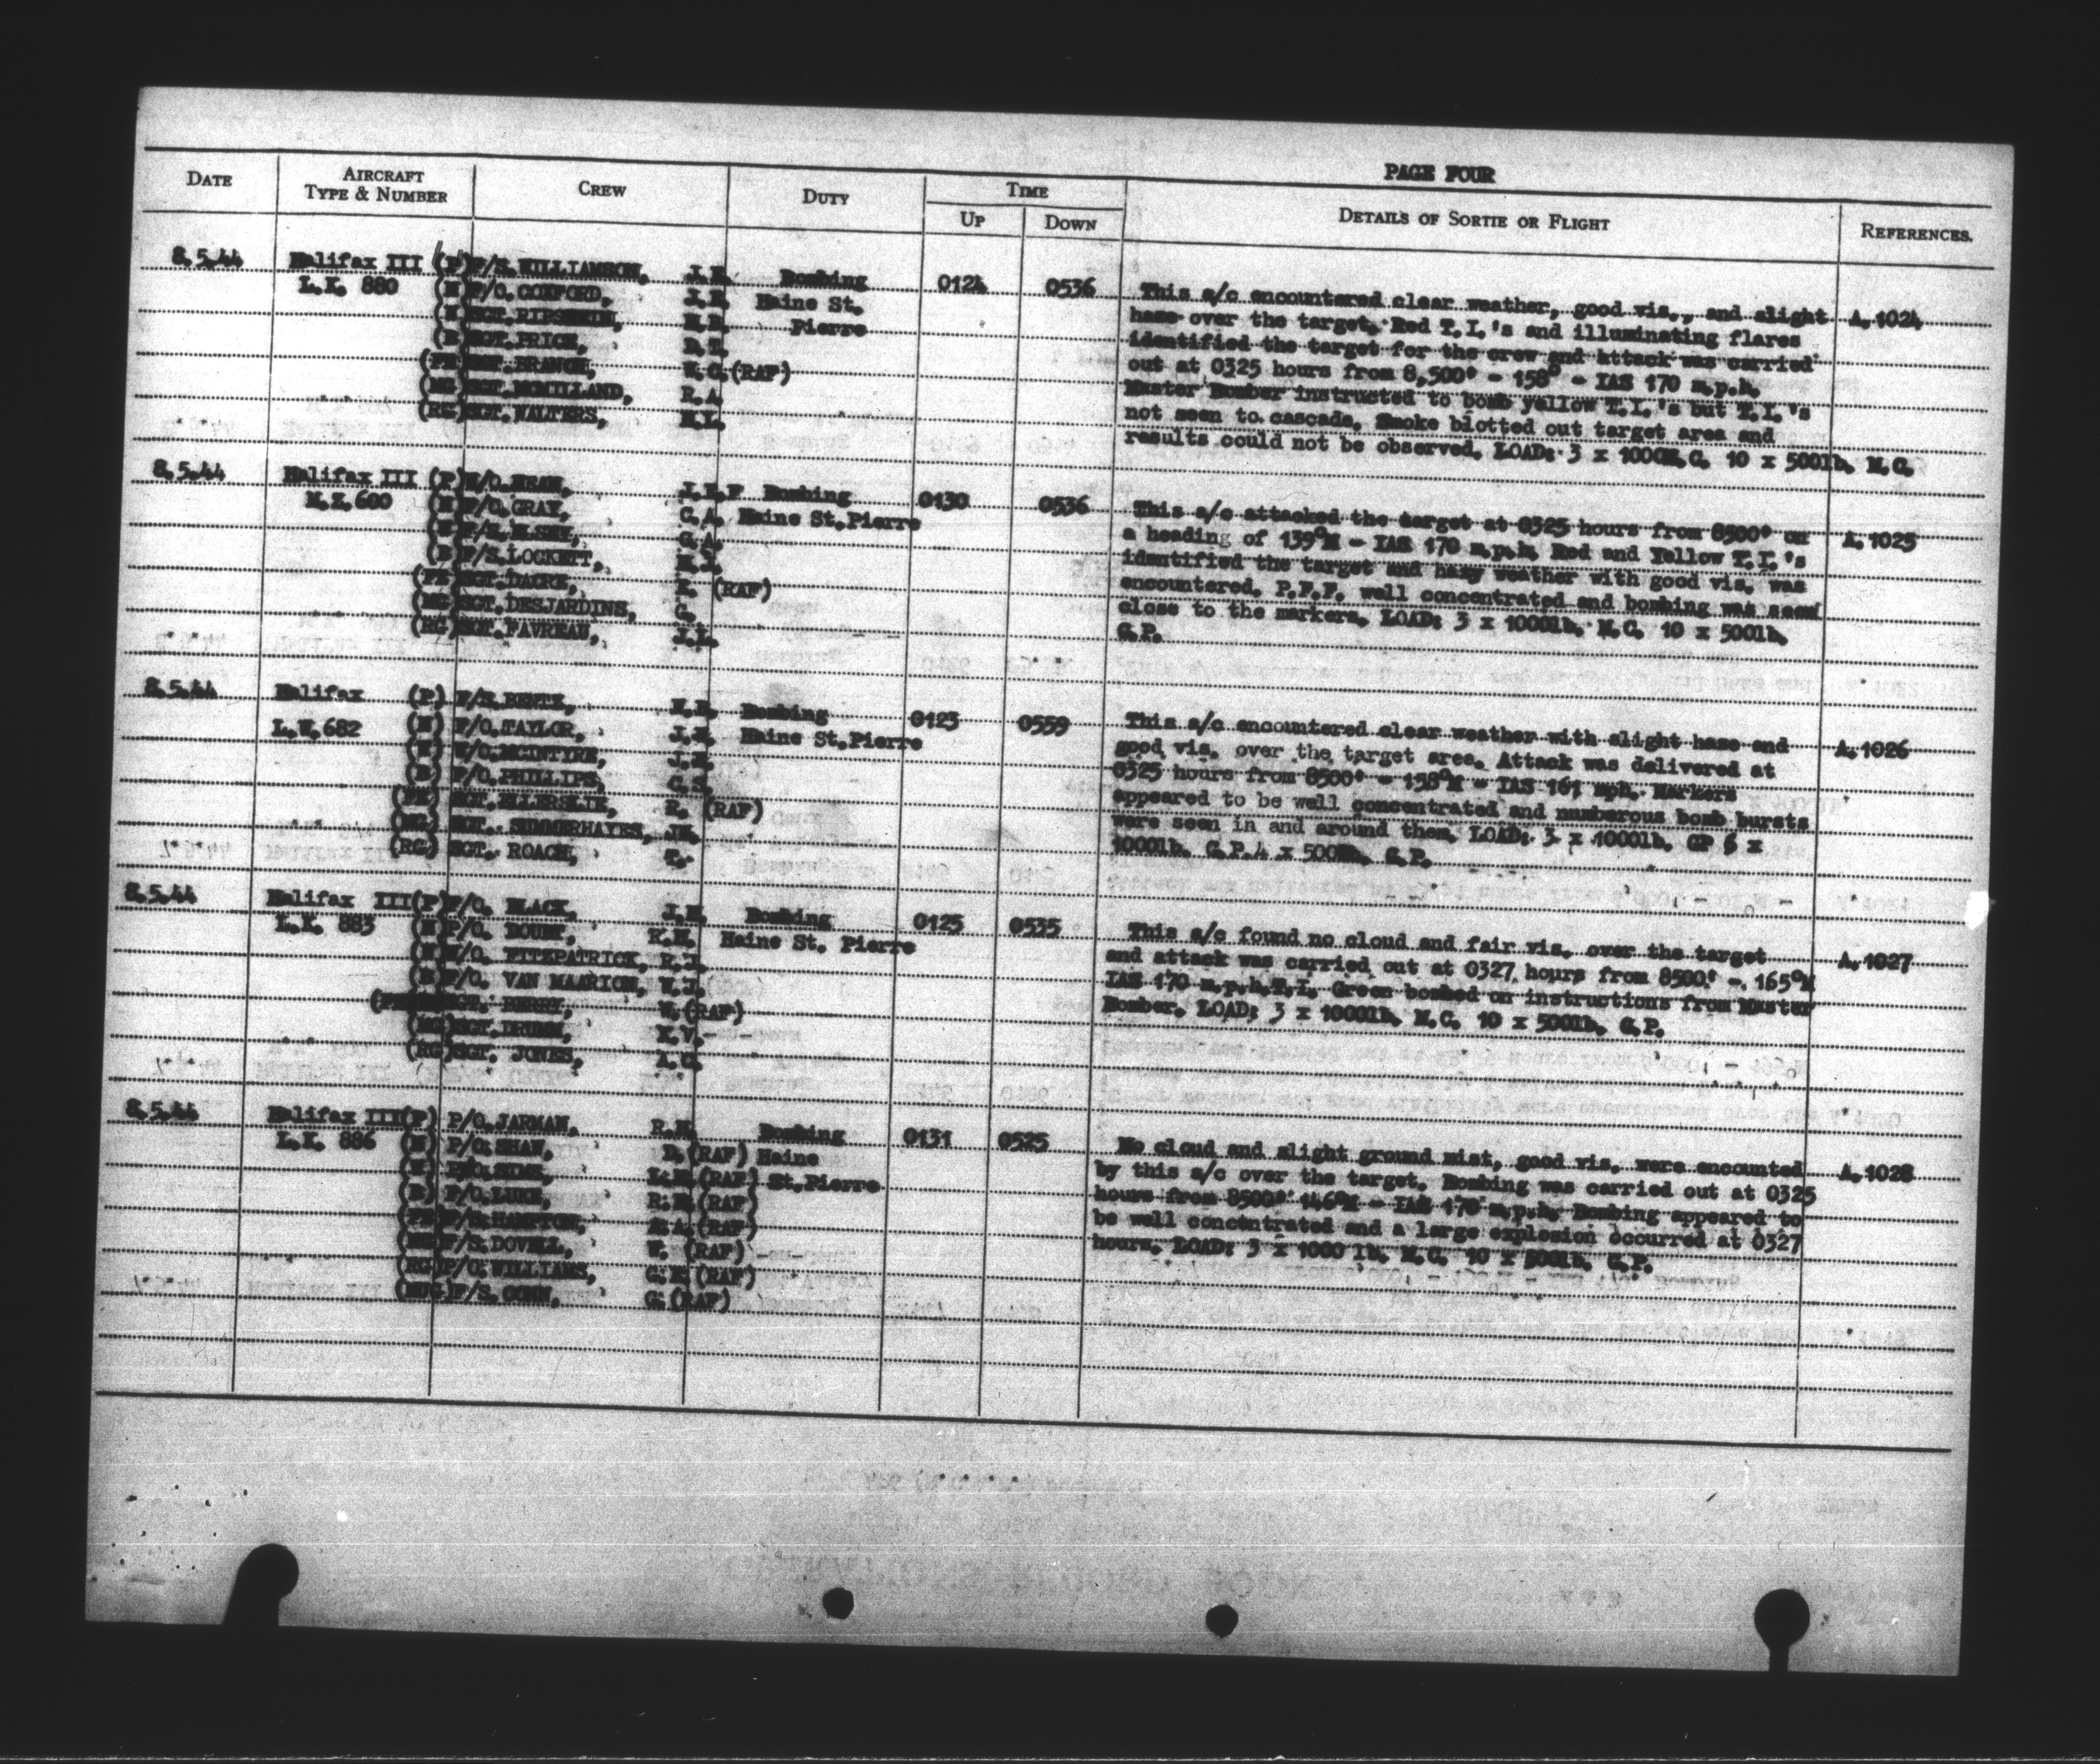 PAGE FOUR
DATE AIRCRAFT TYPE & NUMBER CREW DUTY TIME UP DOWN DETAILS OF SORTIE OR FLIGHT REFERENCES.
8.5.44 Halifax III (P) F/S. WILLIAMSON, J. Bombing 0124 0536 This a/c encountered clear weather, good vis., and slight A.1024
L.K. 880 (N) P/O. COXFORD, J. Haine St. haze over the target. Red T.I.'s and illuminating flares
SGT. Pierre identified the target for the crew and attack was carried
(B) SGT. PRICE, out at 0325 hours from 8,500' - 158° - IAS 170 m.p.h.
(FE) SGT. BRANCH, W.C. (RAF) Master Bomber instructed to bomb yellow T.I.'s but T.I.'s
(MG) SGT. MCMILLAND, R.A. not seen to cascade. Smoke blotted out target area and
(RG) SGT. WALTERS, results could not be observed. LOAD: 3 x 1000M.C. 10 x 500lb. M.C.
8.5.44 Halifax III (P) Bombing 0130 0536 This a/c attacked the target at 0325 hours from 8500' on A.1025
M.Z. 600 (N) F/O. GRAY, G.A. Haine St.Pierre a heading of 139°M - IAS 170 m.p.h. Red and Yellow T.I.'s
G.A. identified the target and hazy weather with good vis. was
(B) F/S. LOCKETT, encountered. P.F.F. well concentrated and bombing was seen
(FE) SGT. DACRE, R. (RAF) close to the markers. LOAD: 3 x 1000lb. M.C. 10 x 500lb.
(MG) SGT. DESJARDINS, G. G.P.
(RG) SGT. FAVREAU, J.L.
8.5.44 Halifax (P) F/S. RENTZ, Bombing 0123 0559 This a/c encountered clear weather with slight haze and A.1026
L.W.682 (N) F/O. TAYLOR, J. Haine St.Pierre good vis. over the target area. Attack was delivered at
(W) MCINTYRE, J. 0325 hours from 8500' - 158°M - IAS 161 mph. Markers
(B) F/O. PHILLIPS, C.S. appeared to be well concentrated and numberous bomb bursts
(FE) SGT. ELLERSLIE, R. (RAF) were seen in and around them. LOAD: 3 x 1000lb. GP 6 x
(MG) SGT. SUMMERHAYES, 1000lb. G.P. 4 x 500lb. G.P.
(RG) SGT. ROACH, T.
8.5.44 Halifax III(P) F/O. BLACK, J. Bombing 0125 0535 This a/c found no cloud and fair vis. over the target A.1027
L.K. 883 (N) P/O. K.H. Haine St. Pierre and attack was carried out at 0327 hours from 8500' - 165°M
FITZPATRICK, R.J. IAS 170 m.p.h. T.I. Green bombed on instructions from Master
(B) F/O. VAN MAARION, W.J. Bomber. LOAD: 3 x 1000lb. M.C. 10 x 500lb. G.P.
SGT. BERRY, W. (RAF)
(MG) SGT. DRUMM, K.V.
(RG) SGT. JONES, A.C.
8.5.44 Halifax III(P) P/O. JARMAN, R. Bombing 0131 0525 No cloud and slight ground mist, good vis. were encounted A.1028
L.K. 886 (N) P/O. SHAW, D. (RAF) Haine by this a/c over the target. Bombing was carried out at 0325
(W) SIMS, (RAF) St.Pierre hours from 8500' 146°M - IAS 170 m.p.h. Bombing appeared to
(B) F/O. LUKE, (RAF) be well concentrated and a large explosion occurred at 0327
(FE) HAMPTON, (RAF) hours. LOAD: 3 x 1000 lb. M.C. 10 x 500lb. G.P.
(MG) F/S. DOVELL, W. (RAF)
(RG) P/O. WILLIAMS, (RAF)
(MUG) F/S. CONN, G. (RAF)